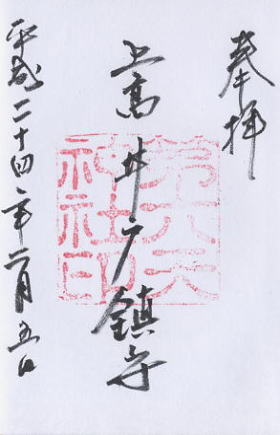 奉拝
上高井戸鎮守
第六天神社印
平成二十四年二月五日